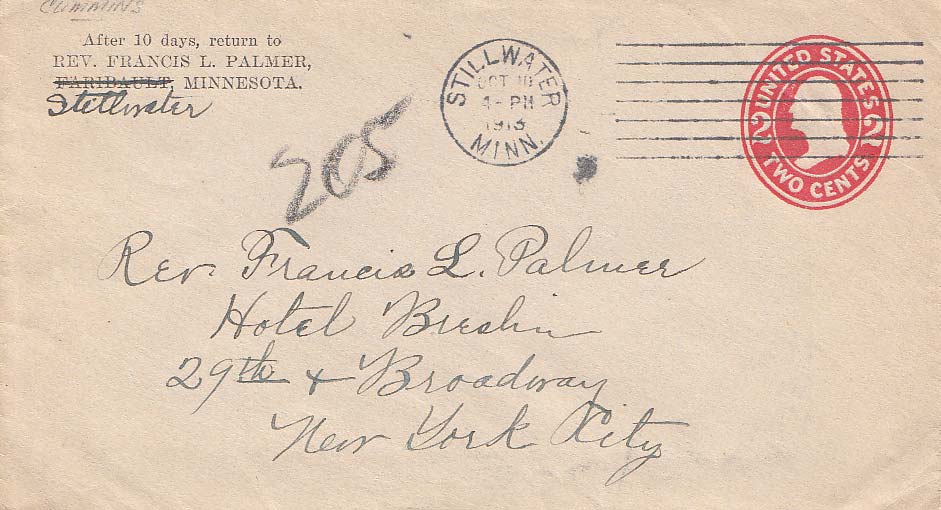 CUMMINS
After 10 days, return to
REV. FRANCIS L. PALMER,
FARIBAULT, MINNESOTA.
Stillwater
STILLWATER
OCT 10
4-PM
1913
MINN.
UNITED STATES
2 2
TWO CENTS
205
Rev. Francis L. Palmer
Hotel Breslin
29th & Broadway
New York City